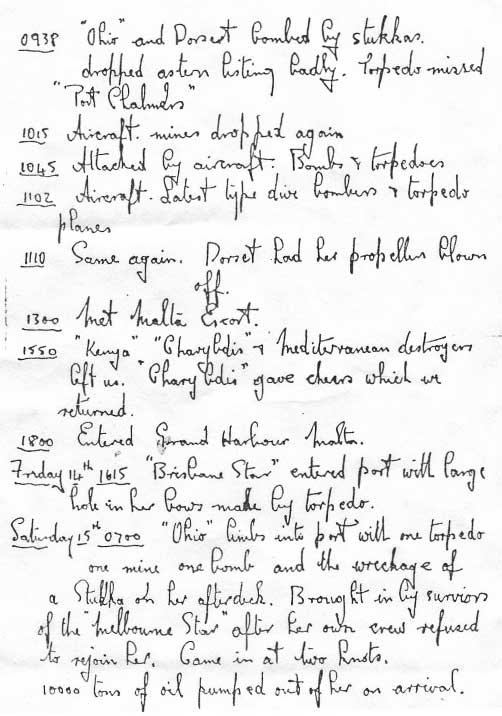 0938 "Ohio" and Dorset bombed by stukkas.
dropped astern listing badly. Torpedo missed
"Port Chalmers"
1015 Aircraft. mines dropped again
1045 Attacked by aircraft. Bombs & torpedoes
1102 Aircraft. Latest type dive bombers & torpedo
planes
1110 Same again. Dorset had her propellers blown
off.
1300 Met Malta Escort.
1550 "Kenya" "Charybdis" & Mediterranean destroyers
left us. "Charybdis" gave cheers which we
returned.
1800 Entered Grand Harbour Malta.
Friday 14th 1615 "Brisbane Star" entered port with large
hole in her bows made by torpedo.
Saturday 15th 0700 "Ohio" limbs into port with one torpedo
one mine one bomb and the wreckage of
a Stukka on her afterdeck. Brought in by surviors
of the "Melbourne Star" after her own crew refused
to rejoin her. Came in at two knots.
10000 tons of oil pumped out of her on arrival.